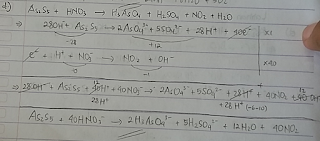 d) As₂S₅ + HNO₃ → H₃AsO₄ + H₂SO₄ + NO₂ + H₂O
⇒ 28OH⁻ + As₂S₅ → 2AsO₄³⁻ + 5SO₄²⁻ + 28H⁺ + 40e⁻ | x1
-28 +12
e⁻ + H⁺ + NO₃⁻ → NO₂ + OH⁻ | x40
0 -1
⇒ 28OH⁻ + As₂S₅ + 40H⁺ + 40NO₃⁻ → 2AsO₄³⁻ + 5SO₄²⁻ + 28H⁺ + 40NO₂ + 40OH⁻
28H⁺ + 28H⁺ (-6-10)
As₂S₅ + 40HNO₃⁻ → 2H₃AsO₄³⁻ + 5H₂SO₄²⁻ + 12H₂O + 40NO₂